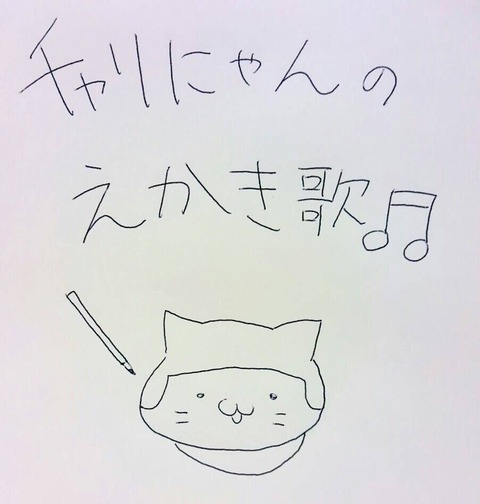 チャリにゃんの
えかき歌♫